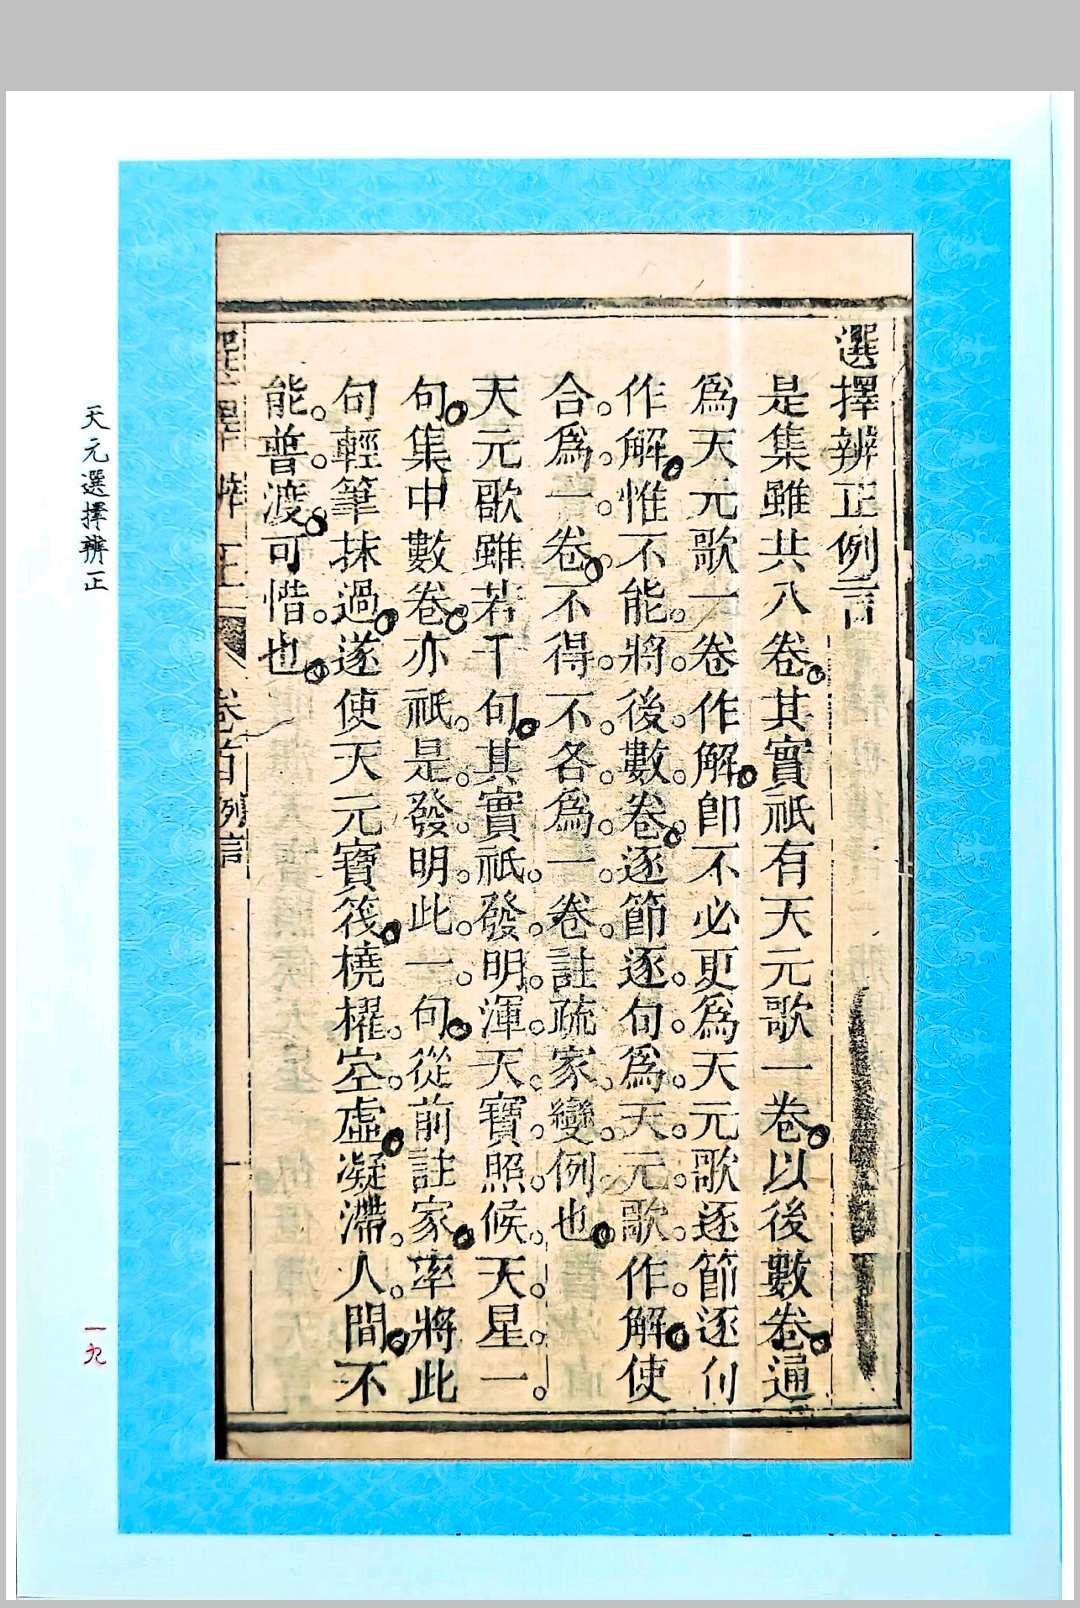 選擇辨正例言
是集雖共八卷其實祇有天元歌一卷以後數卷通
爲天元歌一卷作解卽不必更爲天元歌逐節逐句
作解惟不能將後數卷逐節逐句爲天元歌作解使
合爲一卷不得不各爲一卷註疏家變例也
天元歌雖若干句其實祇發明渾天寶照候天星一
句集中數卷亦祇是發明此一句從前註家率將此
句輕筆抹過遂使天元寶筏橈櫂空虛凝滯人間不
能普渡可惜也
選擇辨正 卷首 例言 一
天元選擇辨正
一九